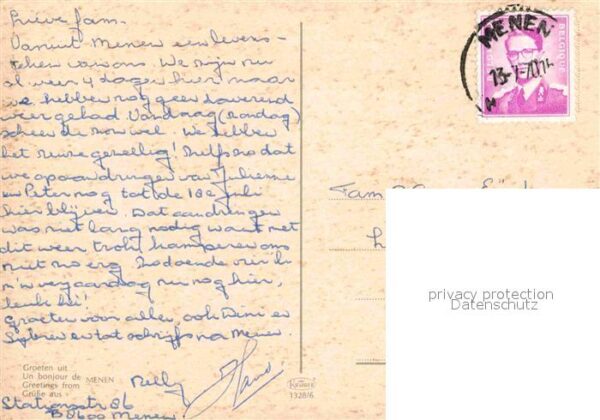 Lieve fam.
Vanuit Menen een levens-
teken van ons. We zijn nu
al weer 4 dagen hier maar
we hebben nog geen daverend
weer gehad. Vandaag (zondag)
scheen de zon wel. We hebben
het reuze gezellig! Zelfs zo dat
we op aandringen van Julienne
en Peter nog tot de 18e juli
hier blijven. Dat aandringen
was niet lang nodig want met
dit weer trok kamperen ons
niet zo erg. Zodoende vier ik
m'n verjaardag nu nog hier,
leuk hè!
Groeten voor allen, ook Wini en
en tot schrijfs na Menen.
Nelly Hans
Stationsstr 86
B8600 Menen
Groeten uit
Un bonjour de MENEN
Greetings from
Grüße aus
KRÜGER
1328/6
MENEN
13-7-70
BELGIQUE
Fam
privacy protection
Datenschutz